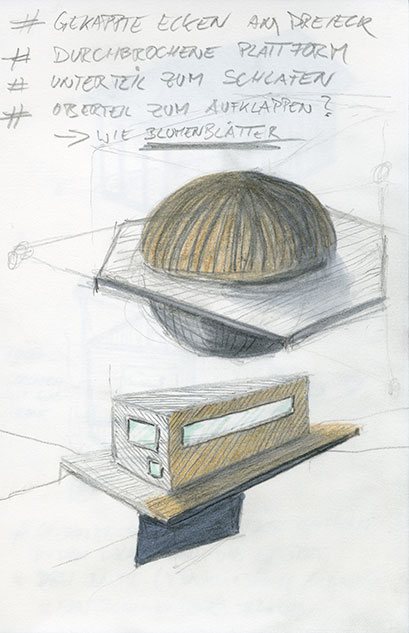 # GEKAPPTE ECKEN AM DREIECK
# DURCHBROCHENE PLATTFORM
# UNTERTEIL ZUM SCHLAFEN
# OBERTEIL ZUM AUFKLAPPEN?
→ WIE BLUMENBLÄTTER